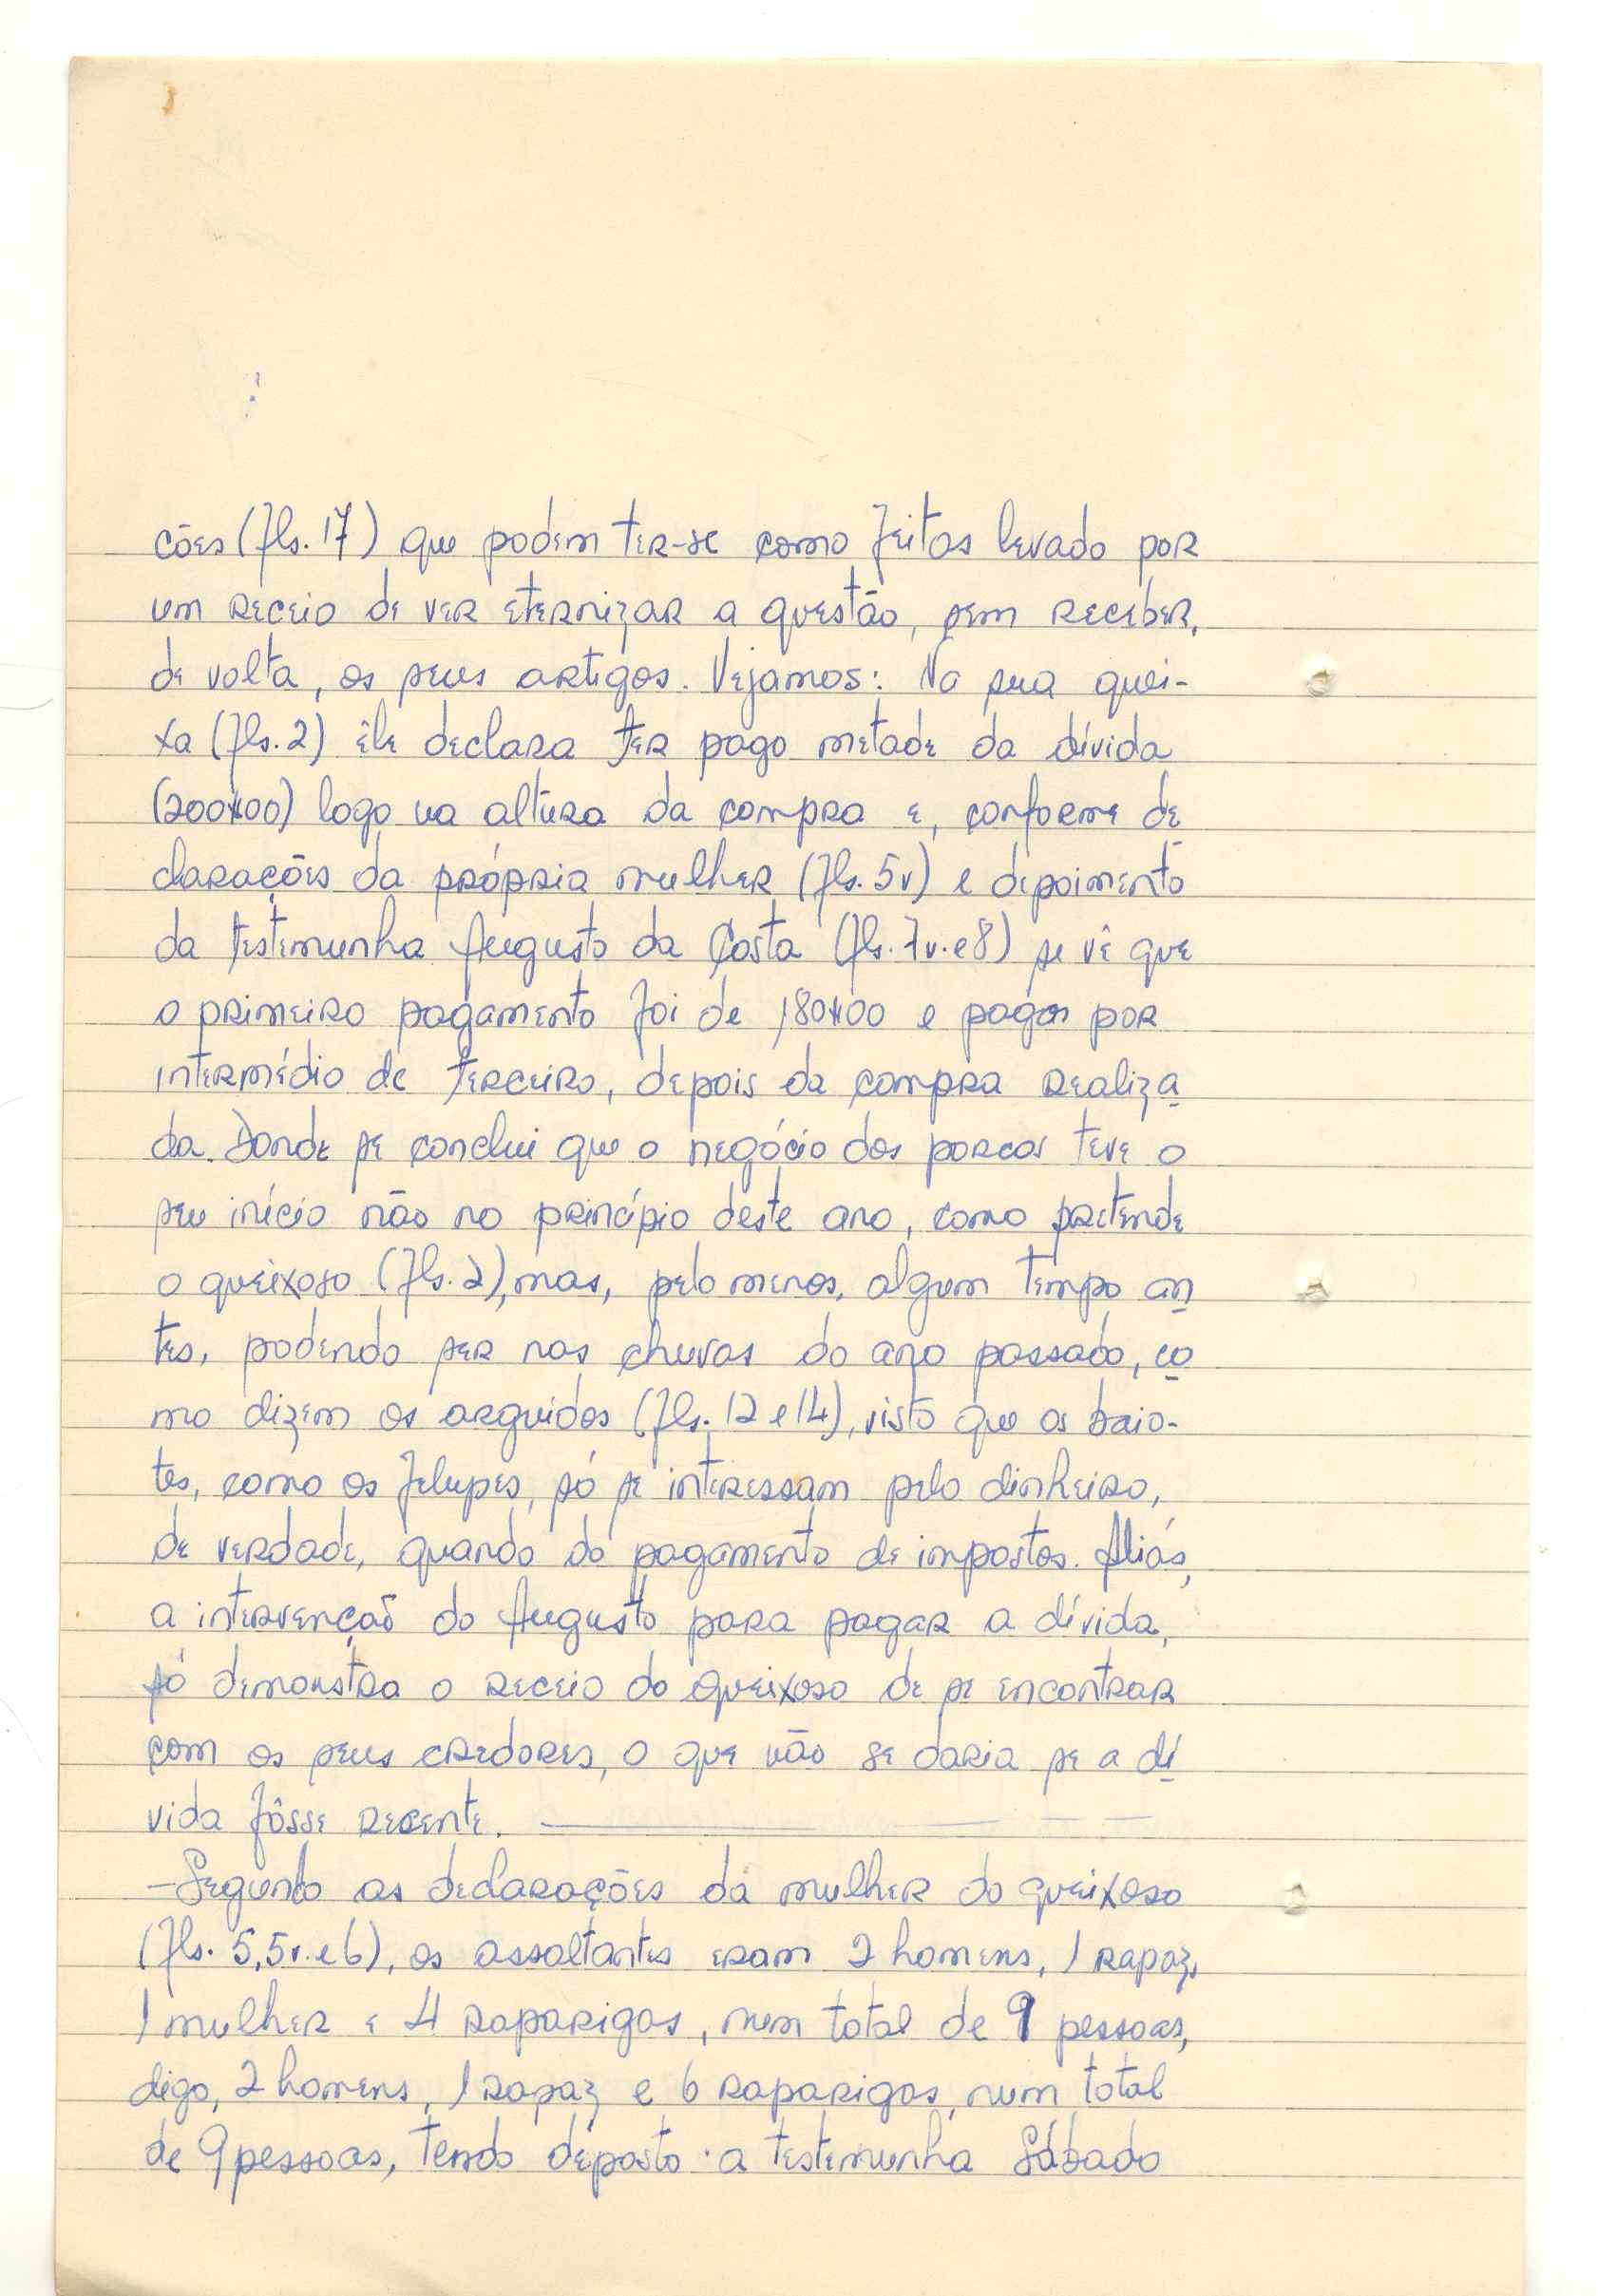 ções (fls. 17) que podem ter-se como feitos levado por
um receio de ver eternizar a questão, sem receber,
de volta, os seus artigos. Vejamos: Na sua quei-
xa (fls. 2) êle declara ter pago metade da dívida
(200$00) logo na altura da compra e, conforme de
clarações da própria mulher (fls. 5v) e depoimento
da testemunha Augusto da Costa (fls. 7v. e 8) se vê que
o primeiro pagamento foi de 180$00 e pagos por
intermédio de terceiro, depois da compra realiza
da. Donde se conclui que o negócio dos porcos teve o
seu início não no princípio deste ano, como pretende
o queixoso (fls. 2), mas, pelo menos, algum tempo an
tes, podendo ser nas chuvas do ano passado, co
mo dizem os arguidos (fls. 12 e 14), visto que os baio-
tes, como os felupes, só se interessam pelo dinheiro,
de verdade, quando do pagamento de impostos. Aliás,
a intervenção do Augusto para pagar a dívida,
só demonstra o receio do queixoso de se encontrar
com os seus credores, o que não se daria se a dí
vida fôsse recente.
- Segundo as declarações da mulher do queixoso
(fls. 5, 5v. e 6), os assaltantes eram 2 homens, 1 rapaz,
1 mulher e 4 raparigas, num total de 9 pessoas,
digo, 2 homens, 1 rapaz e 6 raparigas, num total
de 9 pessoas, tendo deposto a testemunha Sábado